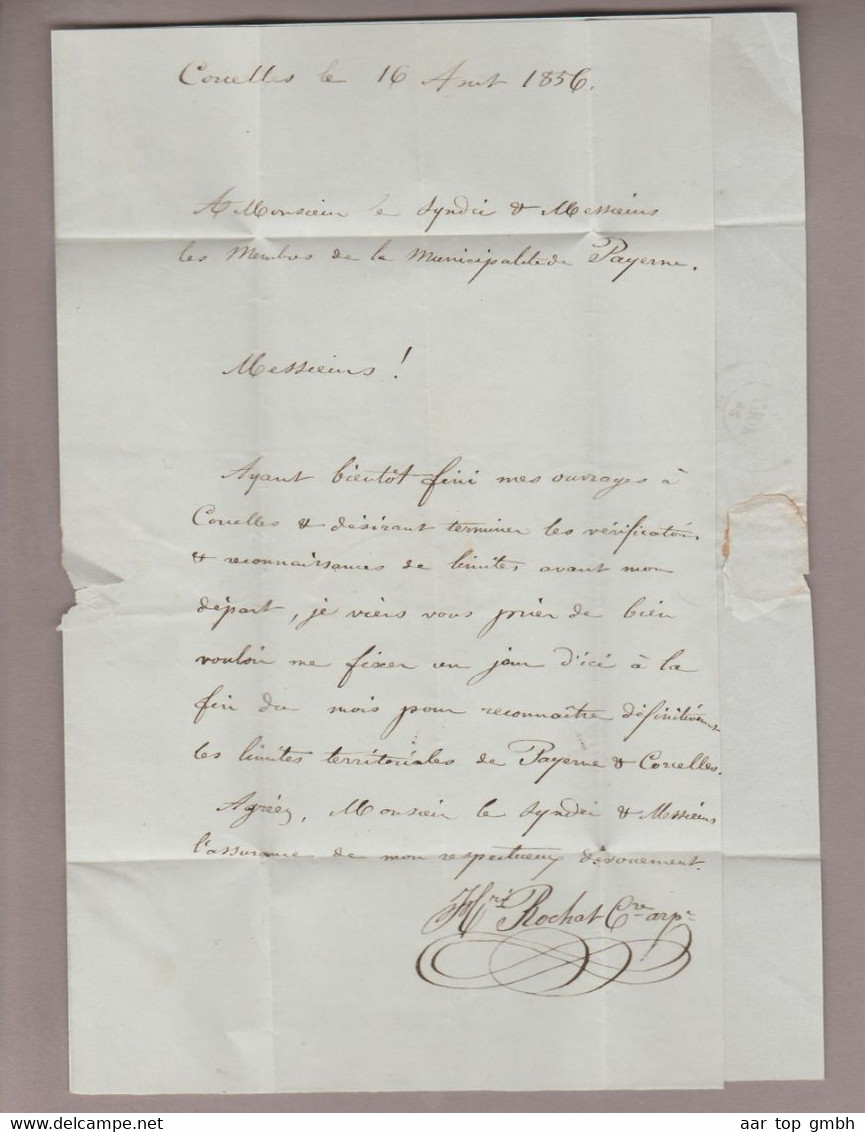 Corcelles le 16 Aout 1856.
A Monsieur le Syndic & Messieurs
les Membres de la Municipalité de Payerne.
Messieurs !
Ayant bientôt fini mes ouvrages à
Corcelles & désirant terminer les vérification.
& reconnaissances de limites avant mon
départ, je viens vous prier de bien
vouloir me fixer un jour d'ici à la
fin du mois pour reconnaître définitivement
les limites territoriales de Payerne & Corcelles.
Agréez, Monsieur le Syndic & Messieurs
l'assurance de mon respectueux dévouement.
Hri Rochat Cre arpr
aar top gmbh